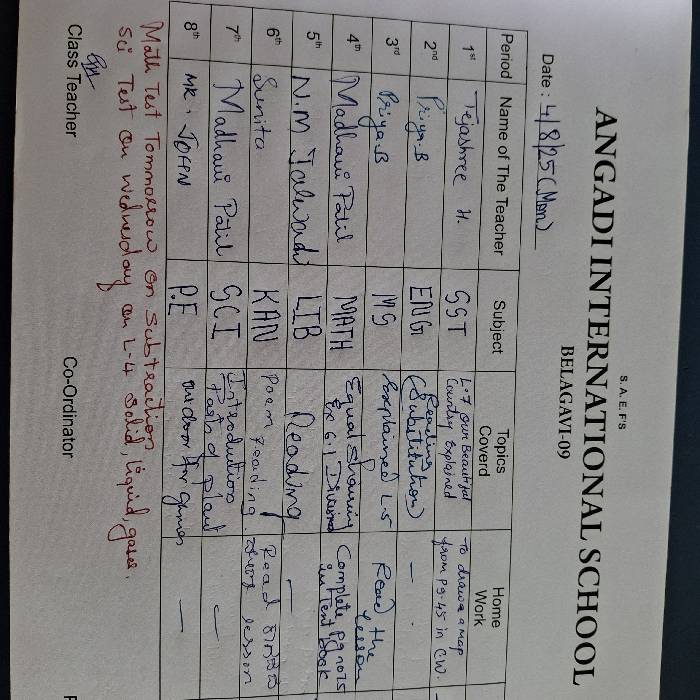 S.A.E.F'S
ANGADI INTERNATIONAL SCHOOL
BELAGAVI-09
Date : 4/8/25 (Mon)
Period Name of The Teacher Subject Topics Coverd Home Work
1st Tejashree H. SST L:7 Our Beautiful Country Explained To draw a map from Pg-45 in CW.
2nd Priya.B ENG Reading (Substitution) —
3rd Priya.B MS Explained L-5 Read the lesson
4th Madhavi Patil MATH Equal Sharing Ex 6.1 Division Complete pg no 75 in Text book
5th N.M Jalwadi LIB Reading —
6th Sunita KAN Poem reading. Read lesson
7th Madhavi Patil SCI Introdution Parts of plant —
8th MR. JOHN P.E outdoor for games —
Math Test Tommorow on Subtraction
Sci Test on Wednesday on L-4 Solid, liquid, gases.
Class Teacher Co-Ordinator P